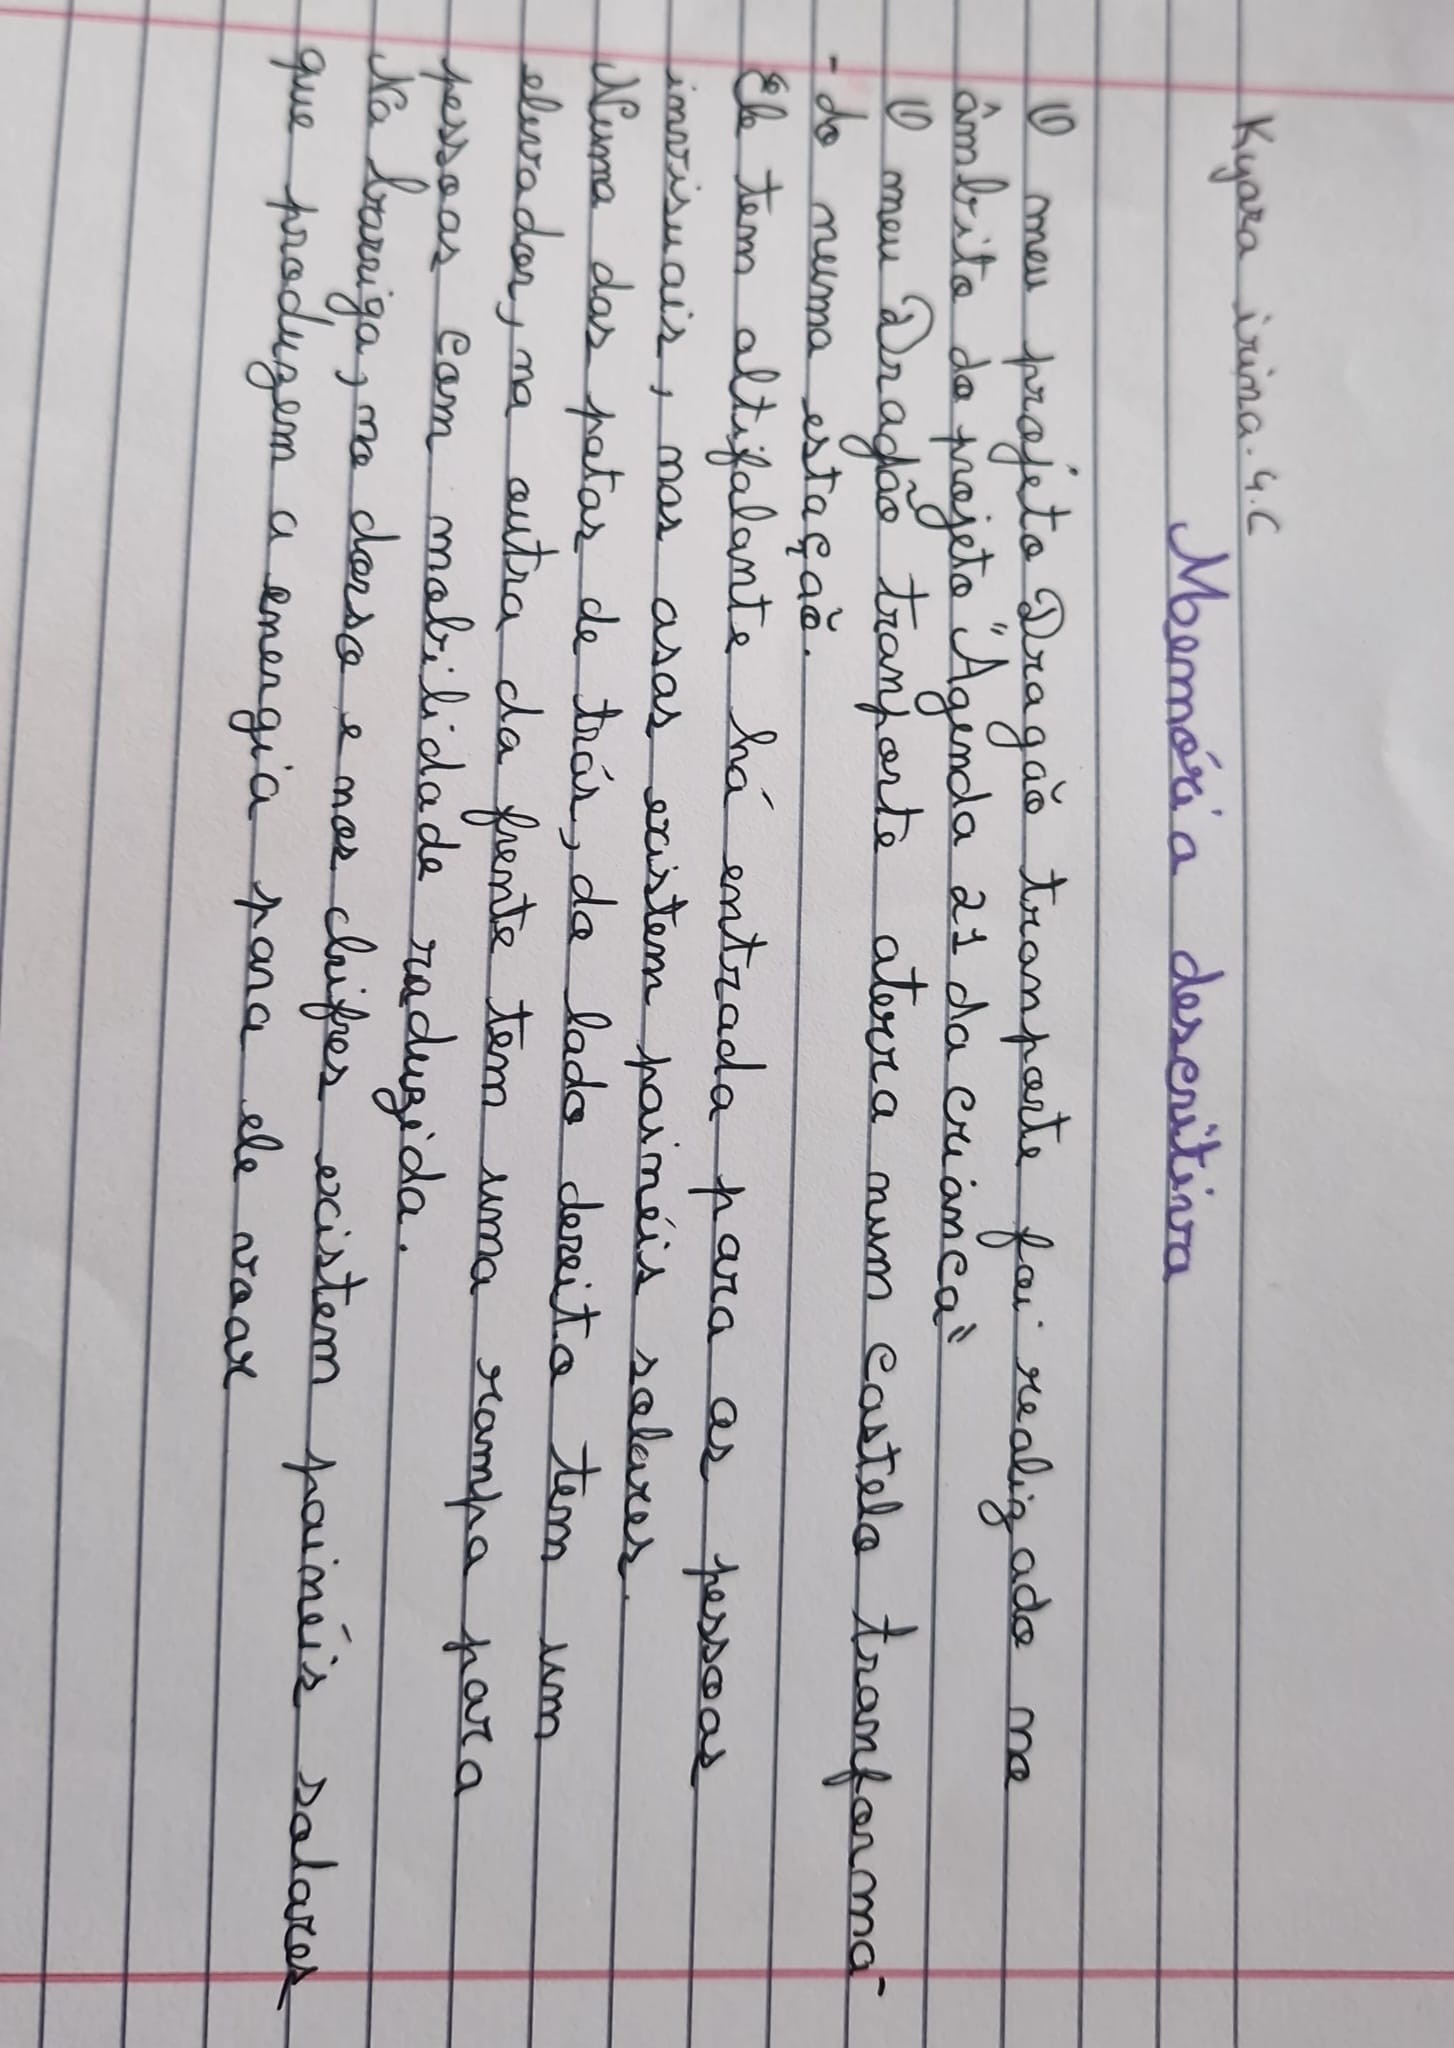 Kyara irina. 4.C
Memória descritiva
O meu projeto Dragão tranporte foi realizado no
âmbito do projeto "Agenda 21 da criança"
O meu Dragão tranporte aterra num castelo tranforma-
-do numa estação.
Ele tem altifalante há entrada para as pessoas
invisuais, nas asas existem painéis solares.
Numa das patas de trás, do lado dereito tem um
elevador, na outra da frente tem uma rampa para
pessoas com mobilidade raduzida.
Na barriga, no dorso e nos chifres existem painéis solares
que produzem a energia para ele voar